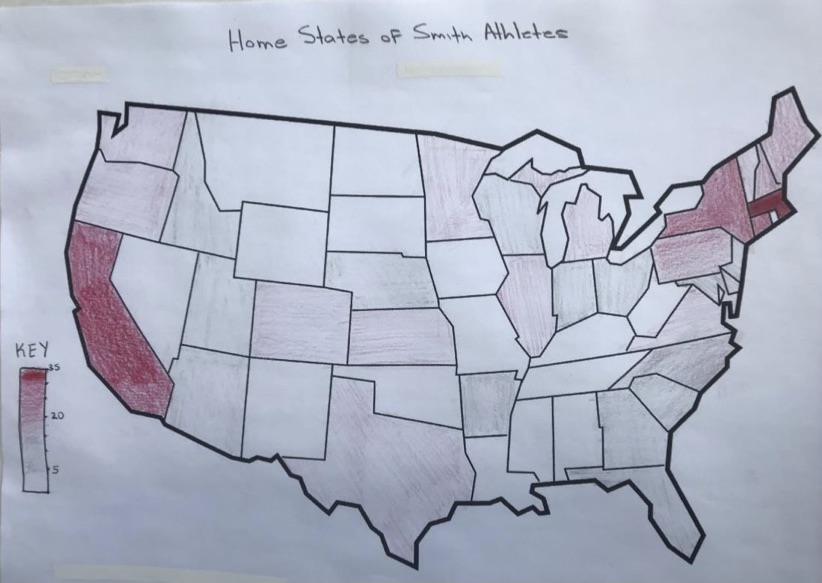 Home States of Smith Athletes
KEY
35
20
5